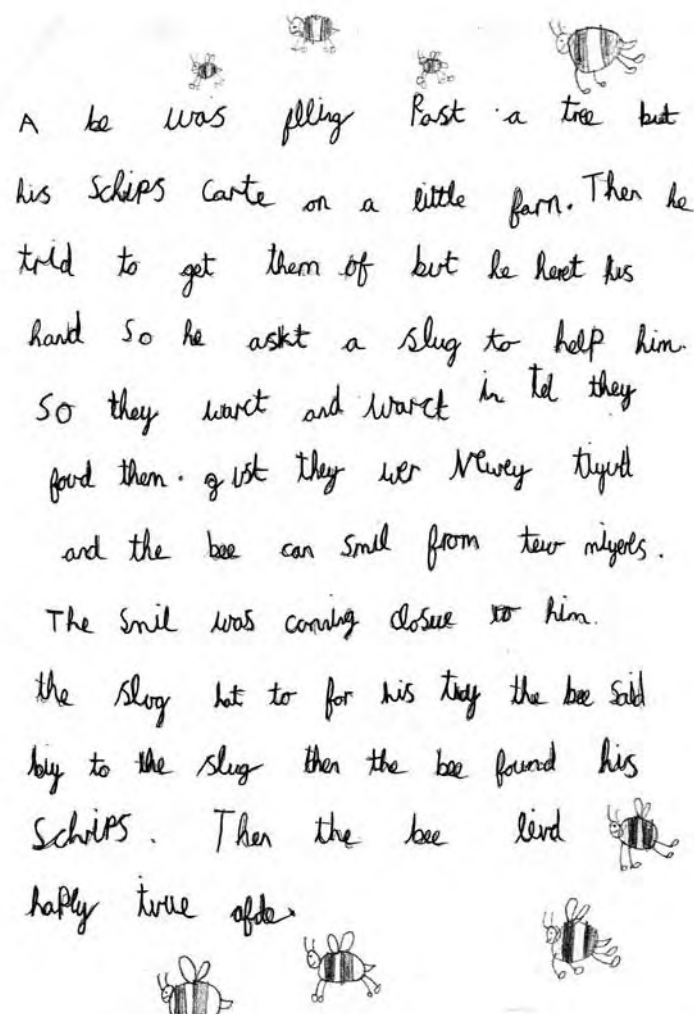 A be was flling Past a tree but
his Schips Carte on a little farn. Then he
trid to get them of but he heret his
hand So he askt a slug to help him.
So they warct and warct in tel they
fowd them. gust they wer Newey tiyud
and the bee can Smil from tew miyels.
The Smil was conning closue to him.
the slug hat to for his tidy the bee Said
biy to the slug then the bee found his
Schrips. Then the bee livd
haply twue afde